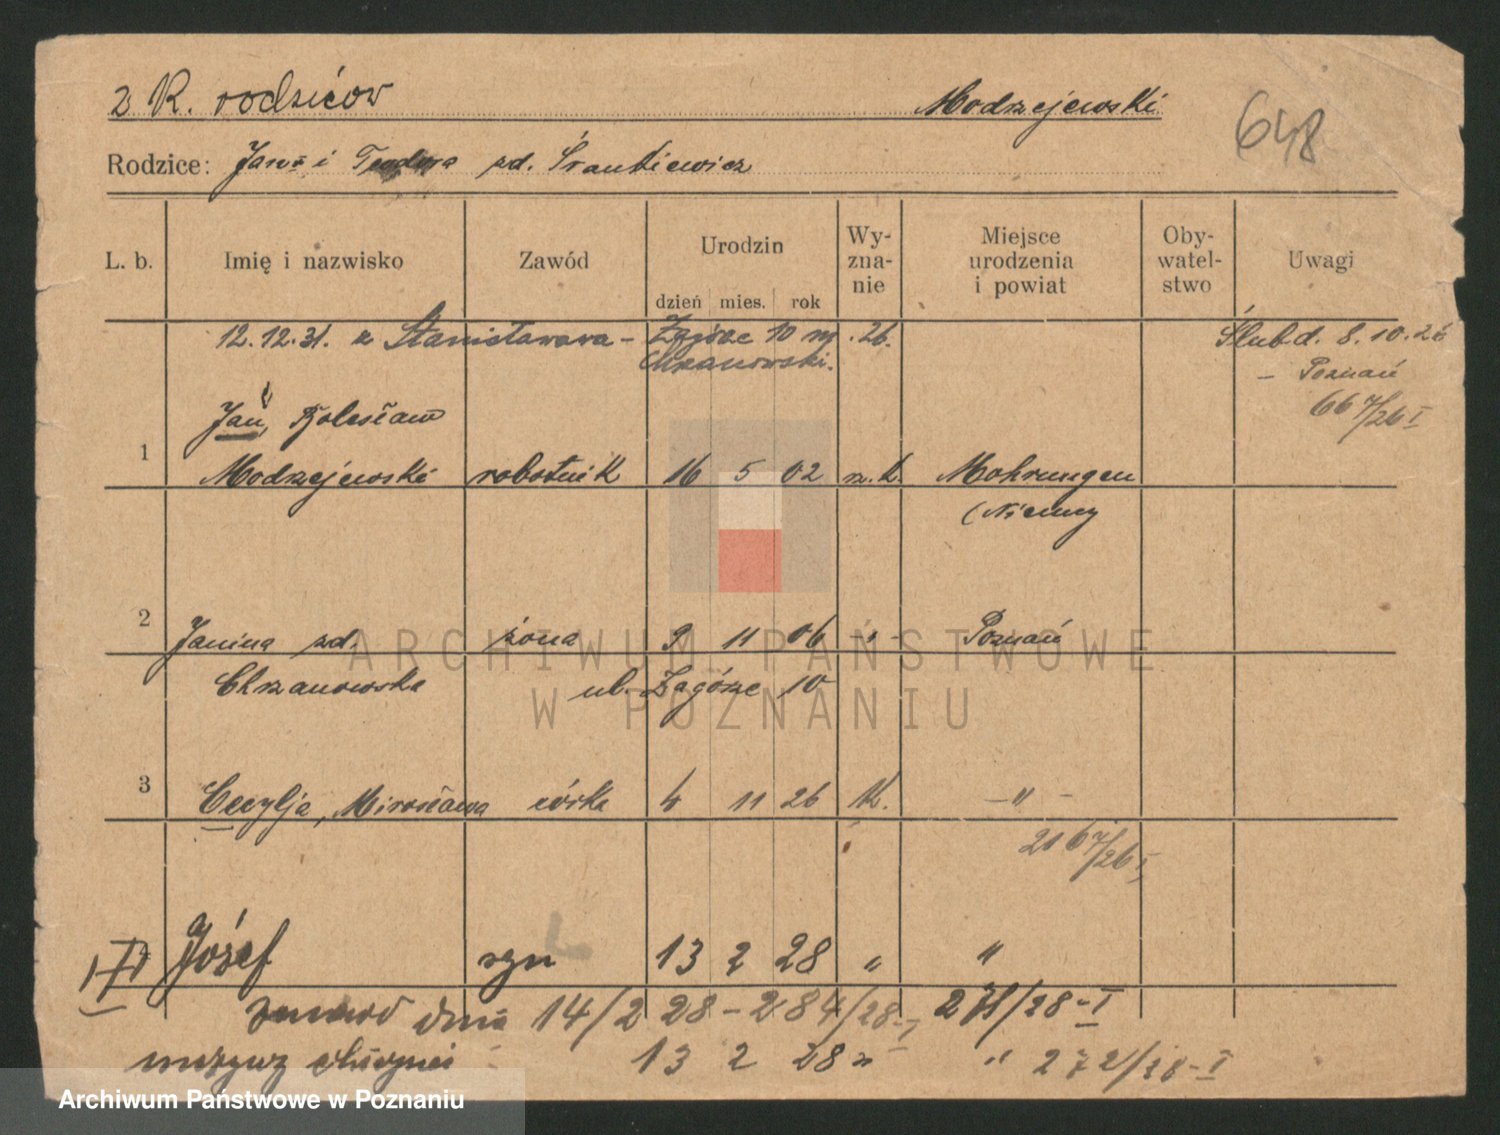 z K. rodziców Modrzejewski 648
Rodzice: Jan i Teodora zd. Frankiewicz
L. b. Imię i nazwisko Zawód Urodzin dzień mies. rok Wy-zna-nie Miejsce urodzenia i powiat Oby-watel-stwo Uwagi
12.12.31. z Stanisławowa - Zagórze 10 . 26. Ślub d. 8.10.26
Chrzanowski. - Poznań
667/26 I
Jan, Bolesław
1 Modrzejewski robotnik 16 5 02 rz. k. Mohrungen
(Niemcy
2 Janina zd. żona 9 11 06 - " - Poznań
Chrzanowska ul. Zagórze 10
3 Cecylja, Mirosława córka 4 11 26 K. - " -
2167/26 I
4 Józef syn 13 2 28 " "
dnia 14/2 28 - 284/28-I 271/28-I
nieżywy 13 2 28 " " 272/28-I
ARCHIWUM PAŃSTWOWE
W POZNANIU
Archiwum Państwowe w Poznaniu